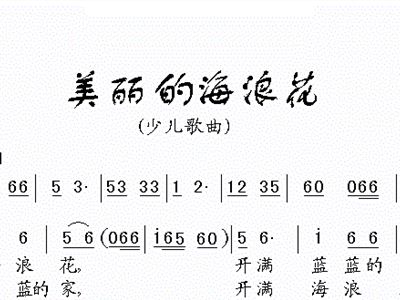 美丽的海浪花
(少儿歌曲)
66 | 5 3· | 53 33 | 1 2· | 12 35 | 60 066 |
6 | 5 6 (066 | i65 60) | 5 6· | i 66
浪 花, 开 满 蓝 蓝 的
蓝 的 家, 开 满 海 浪